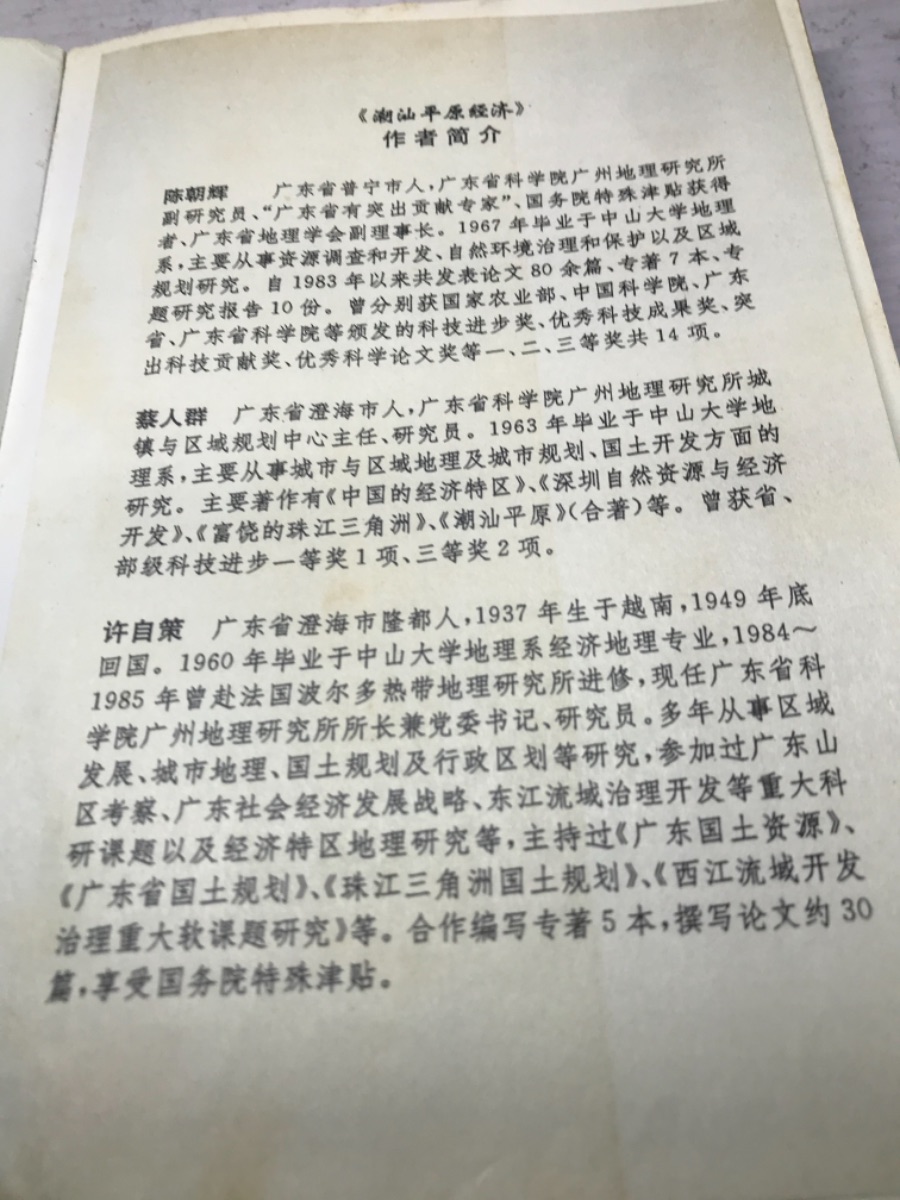 《潮汕平原经济》
作者简介
陈朝辉 广东省普宁市人，广东省科学院广州地理研究所
副研究员、“广东省有突出贡献专家”、国务院特殊津贴获得
者、广东省地理学会副理事长。1967年毕业于中山大学地理
系，主要从事资源调查和开发、自然环境治理和保护以及区域
规划研究。自1983年以来共发表论文80余篇、专著7本、专
题研究报告10份。曾分别获国家农业部、中国科学院、广东
省、广东省科学院等颁发的科技进步奖、优秀科技成果奖、突
出科技贡献奖、优秀科学论文奖等一、二、三等奖共14项。
蔡人群 广东省澄海市人，广东省科学院广州地理研究所城
镇与区域规划中心主任、研究员。1963年毕业于中山大学地
理系，主要从事城市与区域地理及城市规划、国土开发方面的
研究。主要著作有《中国的经济特区》、《深圳自然资源与经济
开发》、《富饶的珠江三角洲》、《潮汕平原》（合著）等。曾获省、
部级科技进步一等奖1项、三等奖2项。
许自策 广东省澄海市隆都人，1937年生于越南，1949年底
回国。1960年毕业于中山大学地理系经济地理专业，1984～
1985年曾赴法国波尔多热带地理研究所进修，现任广东省科
学院广州地理研究所所长兼党委书记、研究员。多年从事区域
发展、城市地理、国土规划及行政区划等研究，参加过广东山
区考察、广东社会经济发展战略、东江流域治理开发等重大科
研课题以及经济特区地理研究等，主持过《广东国土资源》、
《广东省国土规划》、《珠江三角洲国土规划》、《西江流域开发
治理重大软课题研究》等。合作编写专著5本，撰写论文约30
篇，享受国务院特殊津贴。